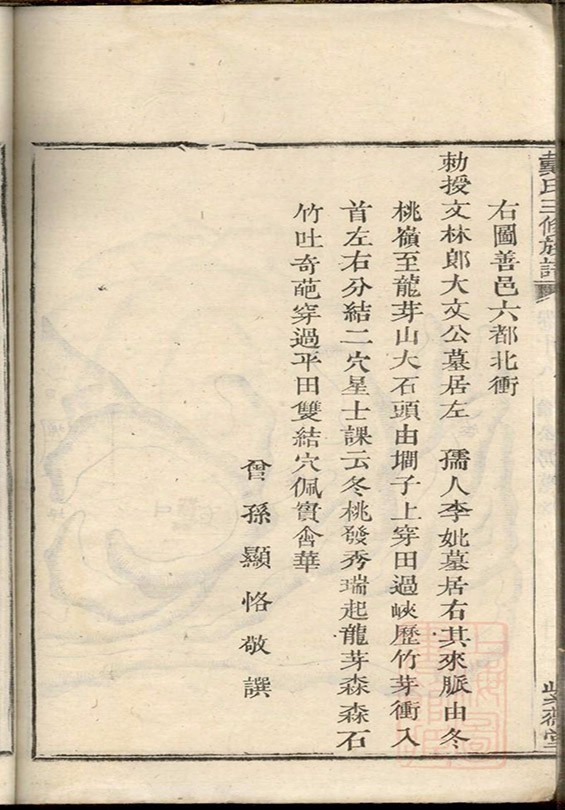 戴氏三修族譜
右圖善邑六都北衝
勅授文林郎大文公墓居左　孺人李妣墓居右其來脈由冬
桃嶺至龍芽山大石頭由墹子上穿田過峽歷竹芽衝入
首左右分結二穴星士課云冬桃發秀瑞起龍芽森森石
竹吐奇葩穿過平田雙結穴佩實含華
曾孫顯恪敬譔